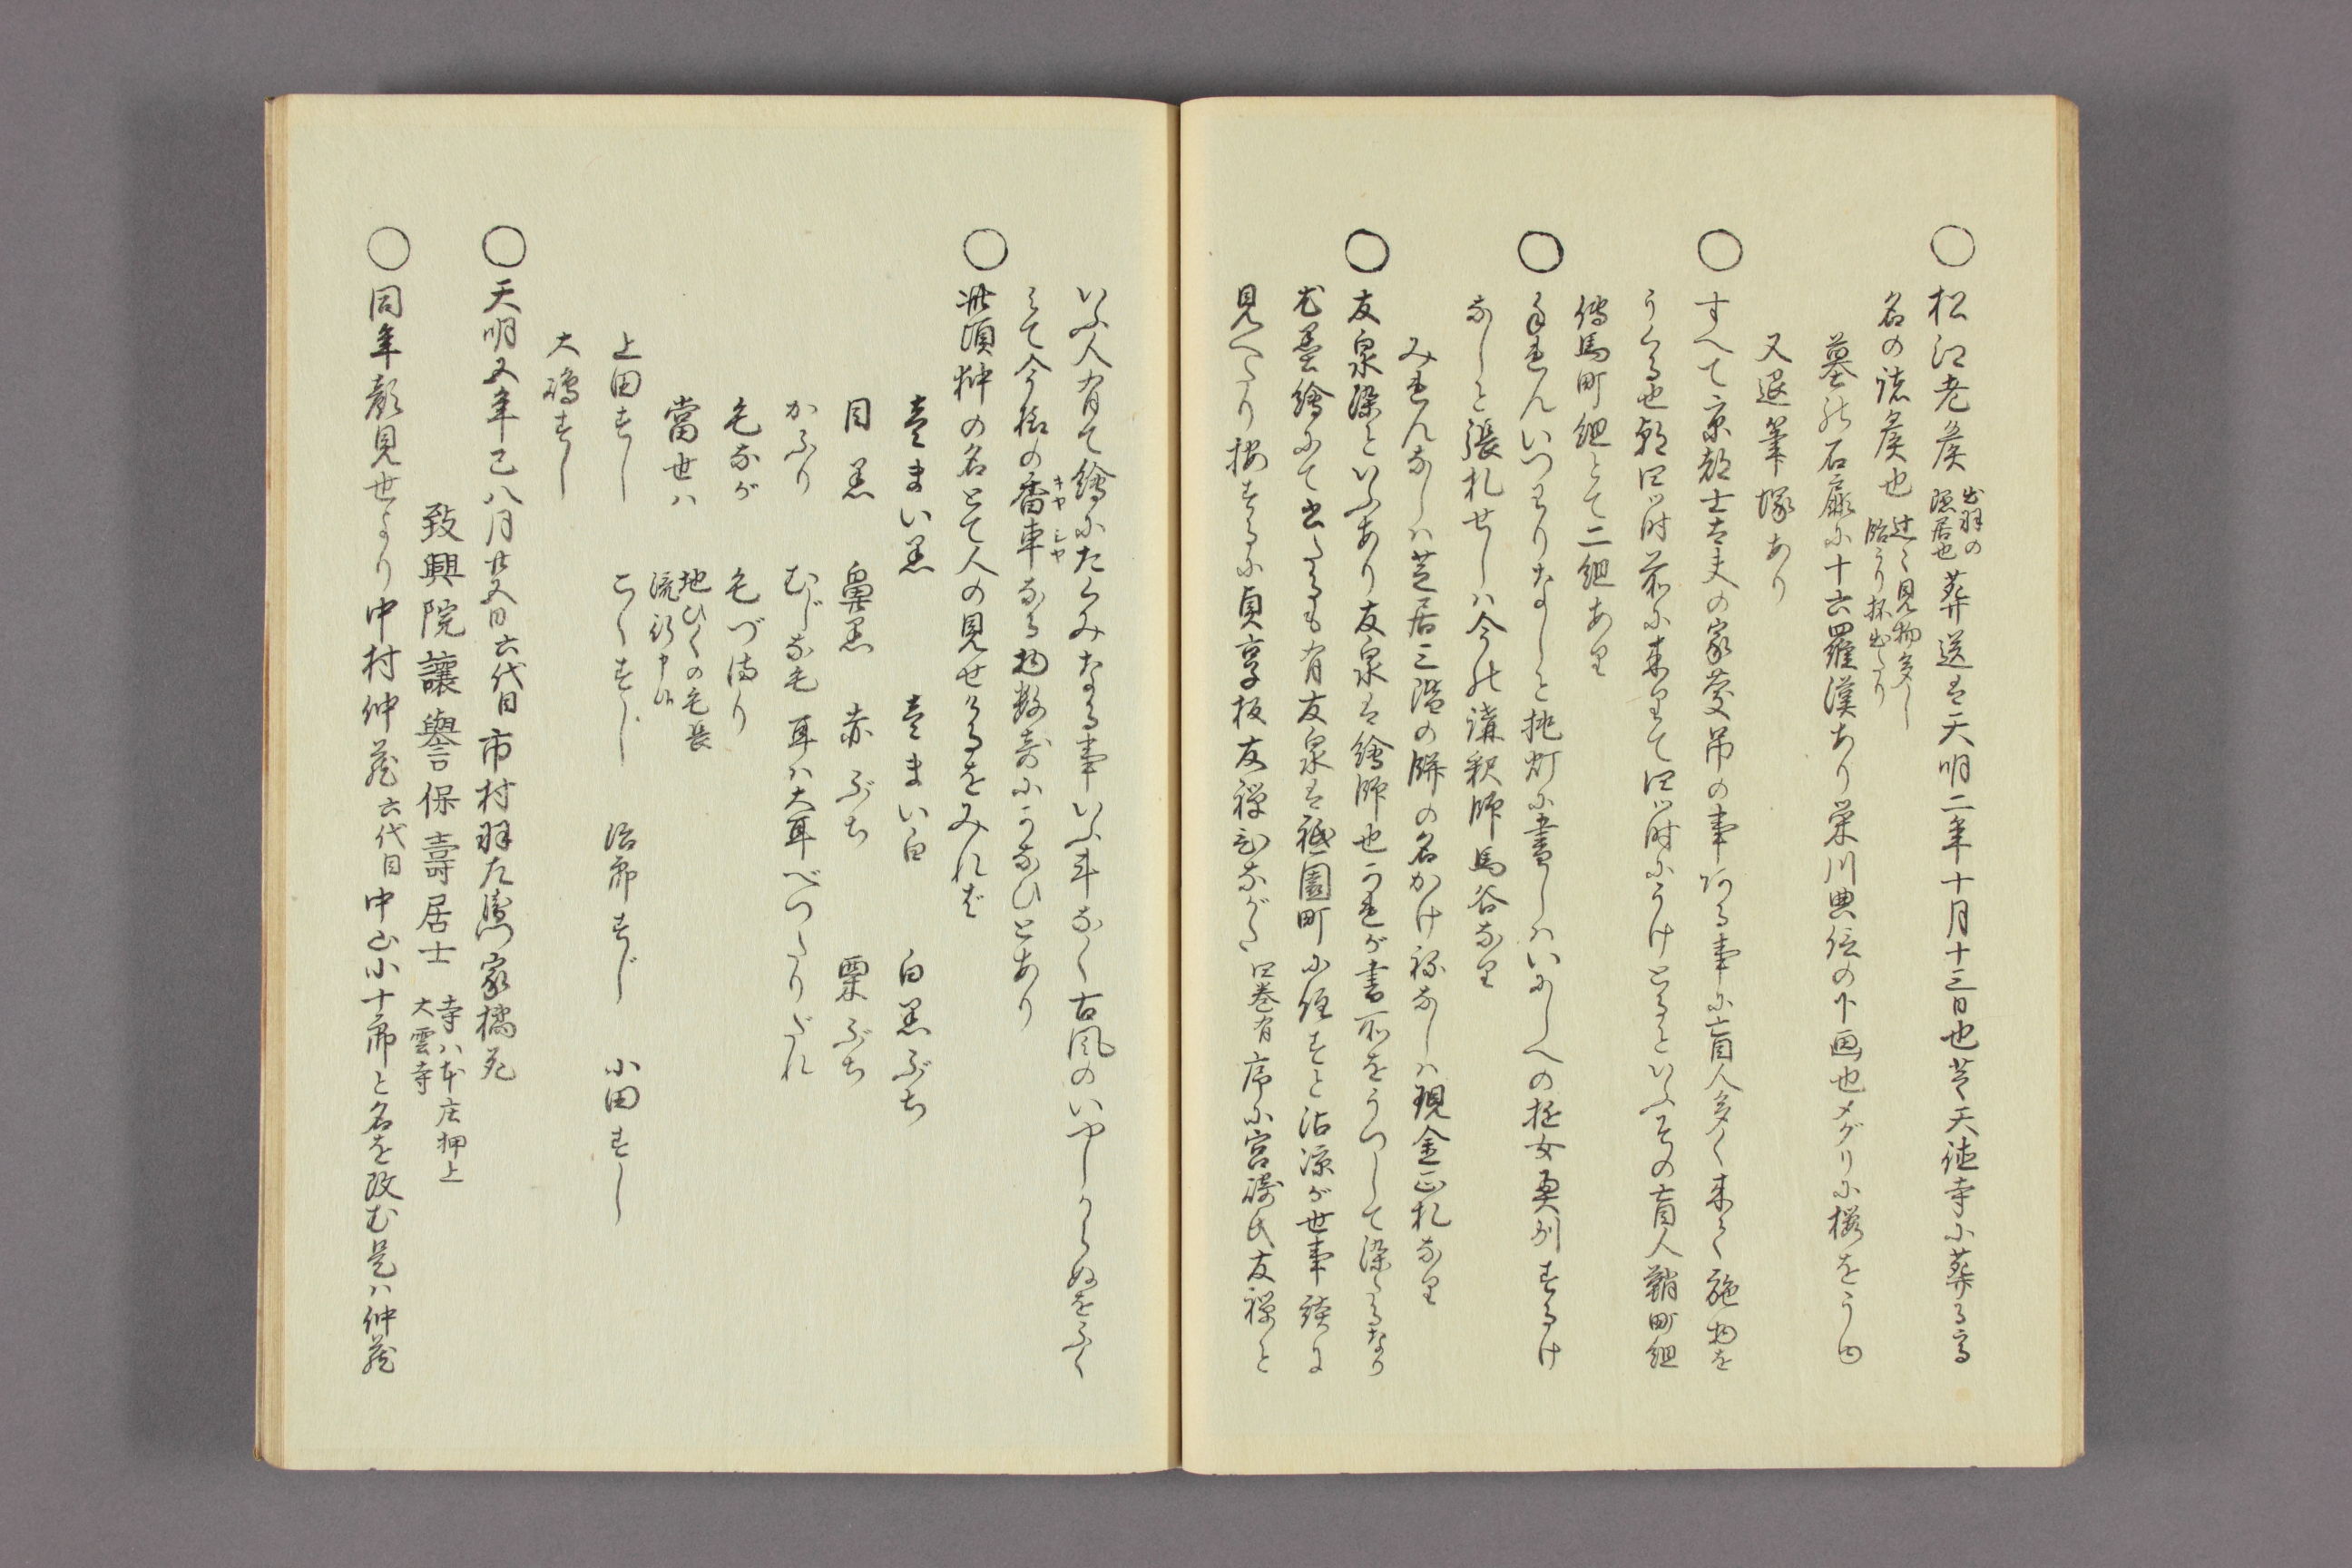 ○松江老侯 出羽の隠居也 葬送は天明二年十月十三日也芝天徳寺に葬る高
名の諸侯也 辻々見物多し飴うり抔出たり
墓の石扉に十六羅漢あり栄川典信の下画也メグリに桜をうゆ
又退筆塚あり
○すへて京都士太夫の家慶吊の事ある事に盲人多く来りて施物を
うくる也朝四ツ時前に来りて四ツ時にうけとるといふその盲人鞘町組
傳馬町組とて二組あり
○手れんいつわりなしと挑灯に書しはいにしへの遊女奥州するけ
なしと張札せしは今の講釈師馬谷なり
みれんなしは芝居三階の餅の名かけ祢なしは現金正札なり
○友泉染といふありり友泉は繪師也これが書所をうつして染たるなり
尤墨繪にて出たるも有友泉は祇園町に住すと沾凉が世事談に
見へたり按するに貞享板友禅ひながた 四巻有 序に宮崎氏友禅と
いふ人有て繪にたくみなる事いふ斗なく古風のいやしからぬをふく
みて今様の香車キヤシヤなる物数寄にかなひとあり
○此頃狆の名とて人の見せけるをみれば
壱まい黒 壱まい白 白黒ぶち
目黒 鼻黒 赤ぶち 栗ぶち
かふり むじな毛 耳は大耳べつたりだれ
毛なが 毛づまり
當世は 地ひくの毛長流行申候
上田すじ こくすじ 治郎すじ 小田すじ
大嶋すじ
○天明五年乙巳八月廿五日六代目市村羽左衛門家橘死
致興院讓譽保壽居士 寺は本庄押上大雲寺
○同年顔見世より中村仲蔵六代目中山小十郎と名を改む是は仲蔵